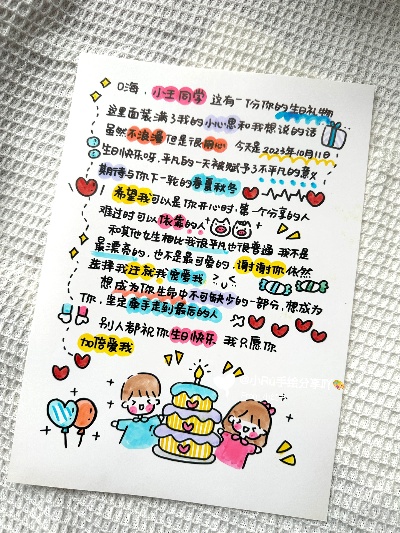 口海，小王同学 这有一份你的生日礼物
这里面装满了我的小心思和我想说的话
虽然不浪漫但是很用心 今天是2023年10月11日
生日快乐呀，平凡的一天被赋予了不平凡的意义
期待与你下一轮的春夏秋冬
希望我可以是你开心时，第一个分享的人
难过时可以依靠的人
和其他女生相比我很平凡也很普通 我不是
最漂亮的，也不是最可爱的，谢谢你依然
选择我 还就我宠爱我
想成为你生命中不可缺少的一部分，想成为
你，坚定牵手走到最后的人
别人都祝你生日快乐 我只愿你
加倍爱我